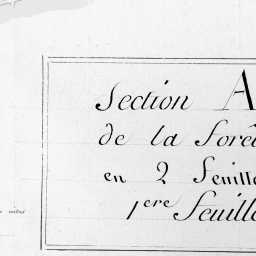 Section A
de la Forê
en 2 Feuille
1ere Feuille